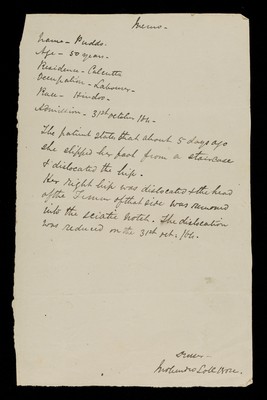 Memo-
Name - Puddo.
Age - 50 years.
Residence - Calcutta
Occupation - Labourer -
Race - Hindoo -
Admission - 31st October /64.
The patient states that about 5 days ago
she slipped her foot from a staircase
& dislocated the hip.
Her right hip was dislocated & the head
of the Femur of that side was removed
into the sciatic notch. The dislocation
was reduced on the 31st Oct. /64.
Dresser -
Mohendro Lall Bose.